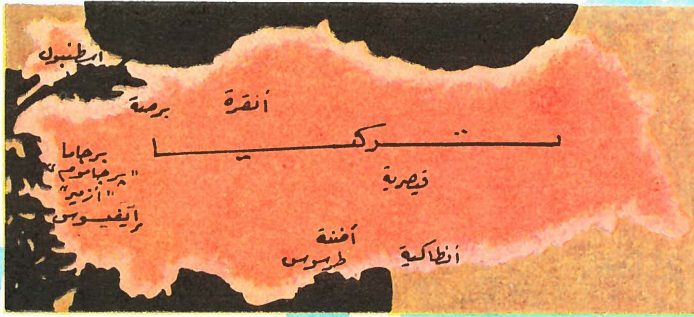 ارطنبول
برصة
أنقرة
تركيا
برجاما
"برجاموم"
"أزمير"
أيفيسوس
قيصرية
أضنة
طرسوس
أنطاكية